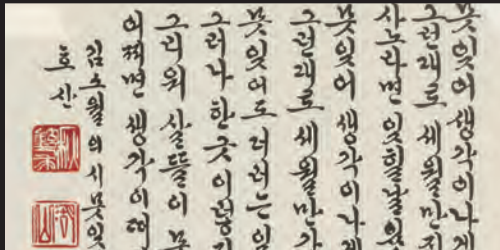 못잊어 생각이 나게
그런대로 세월만
사노라면 잊힐날
못잊어 생각이 나게
그런대로 세월만 가
못잊어도 더러는 잊
그러나 한긋 이렇기
그리워 살뜰이 못
어쩌면 생각이
김소월의 시 못잊
호산